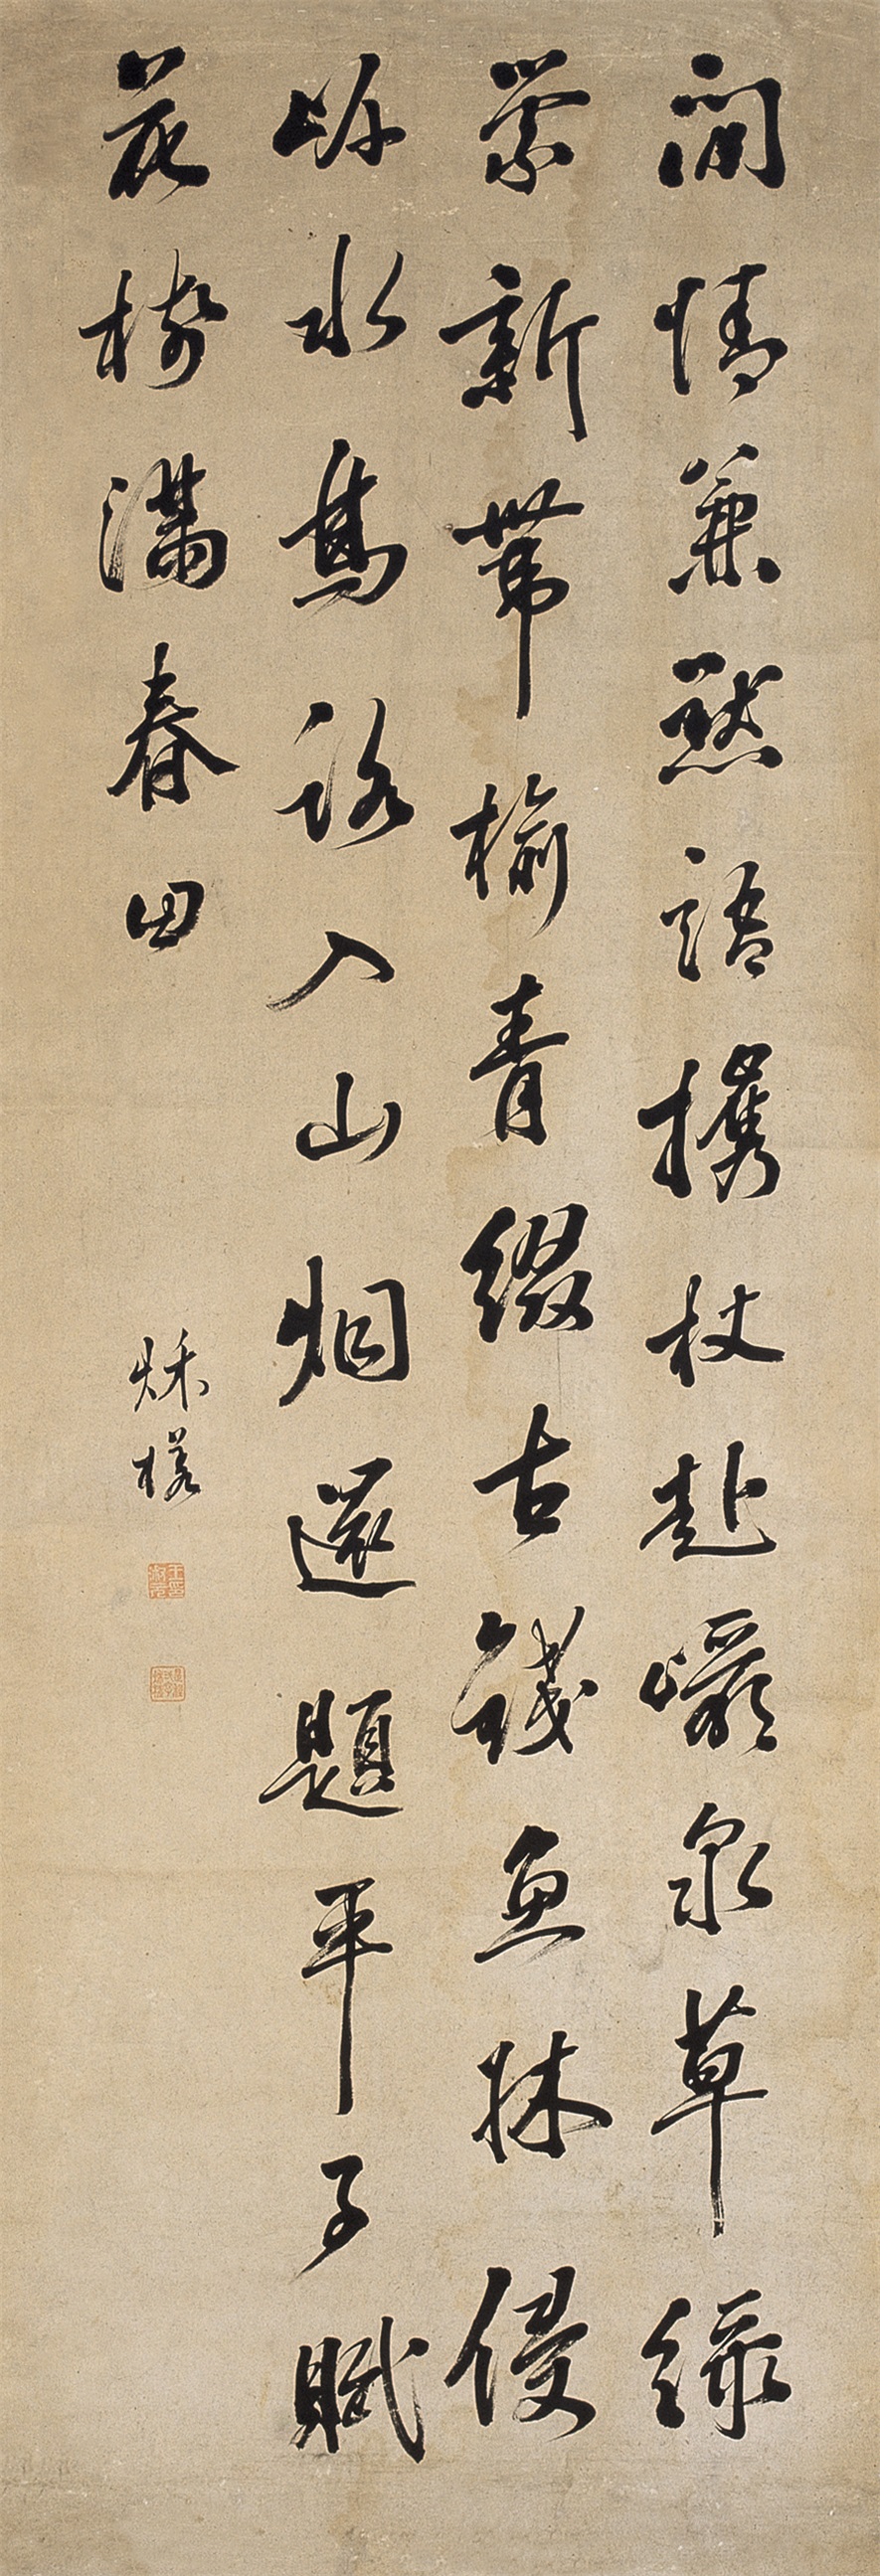 閒情兼默語攜杖赴巖泉草綠
縈新帶榆青綴古錢魚牀侵
岍水鳥路入山烟還題平子賦
花樹滿春田